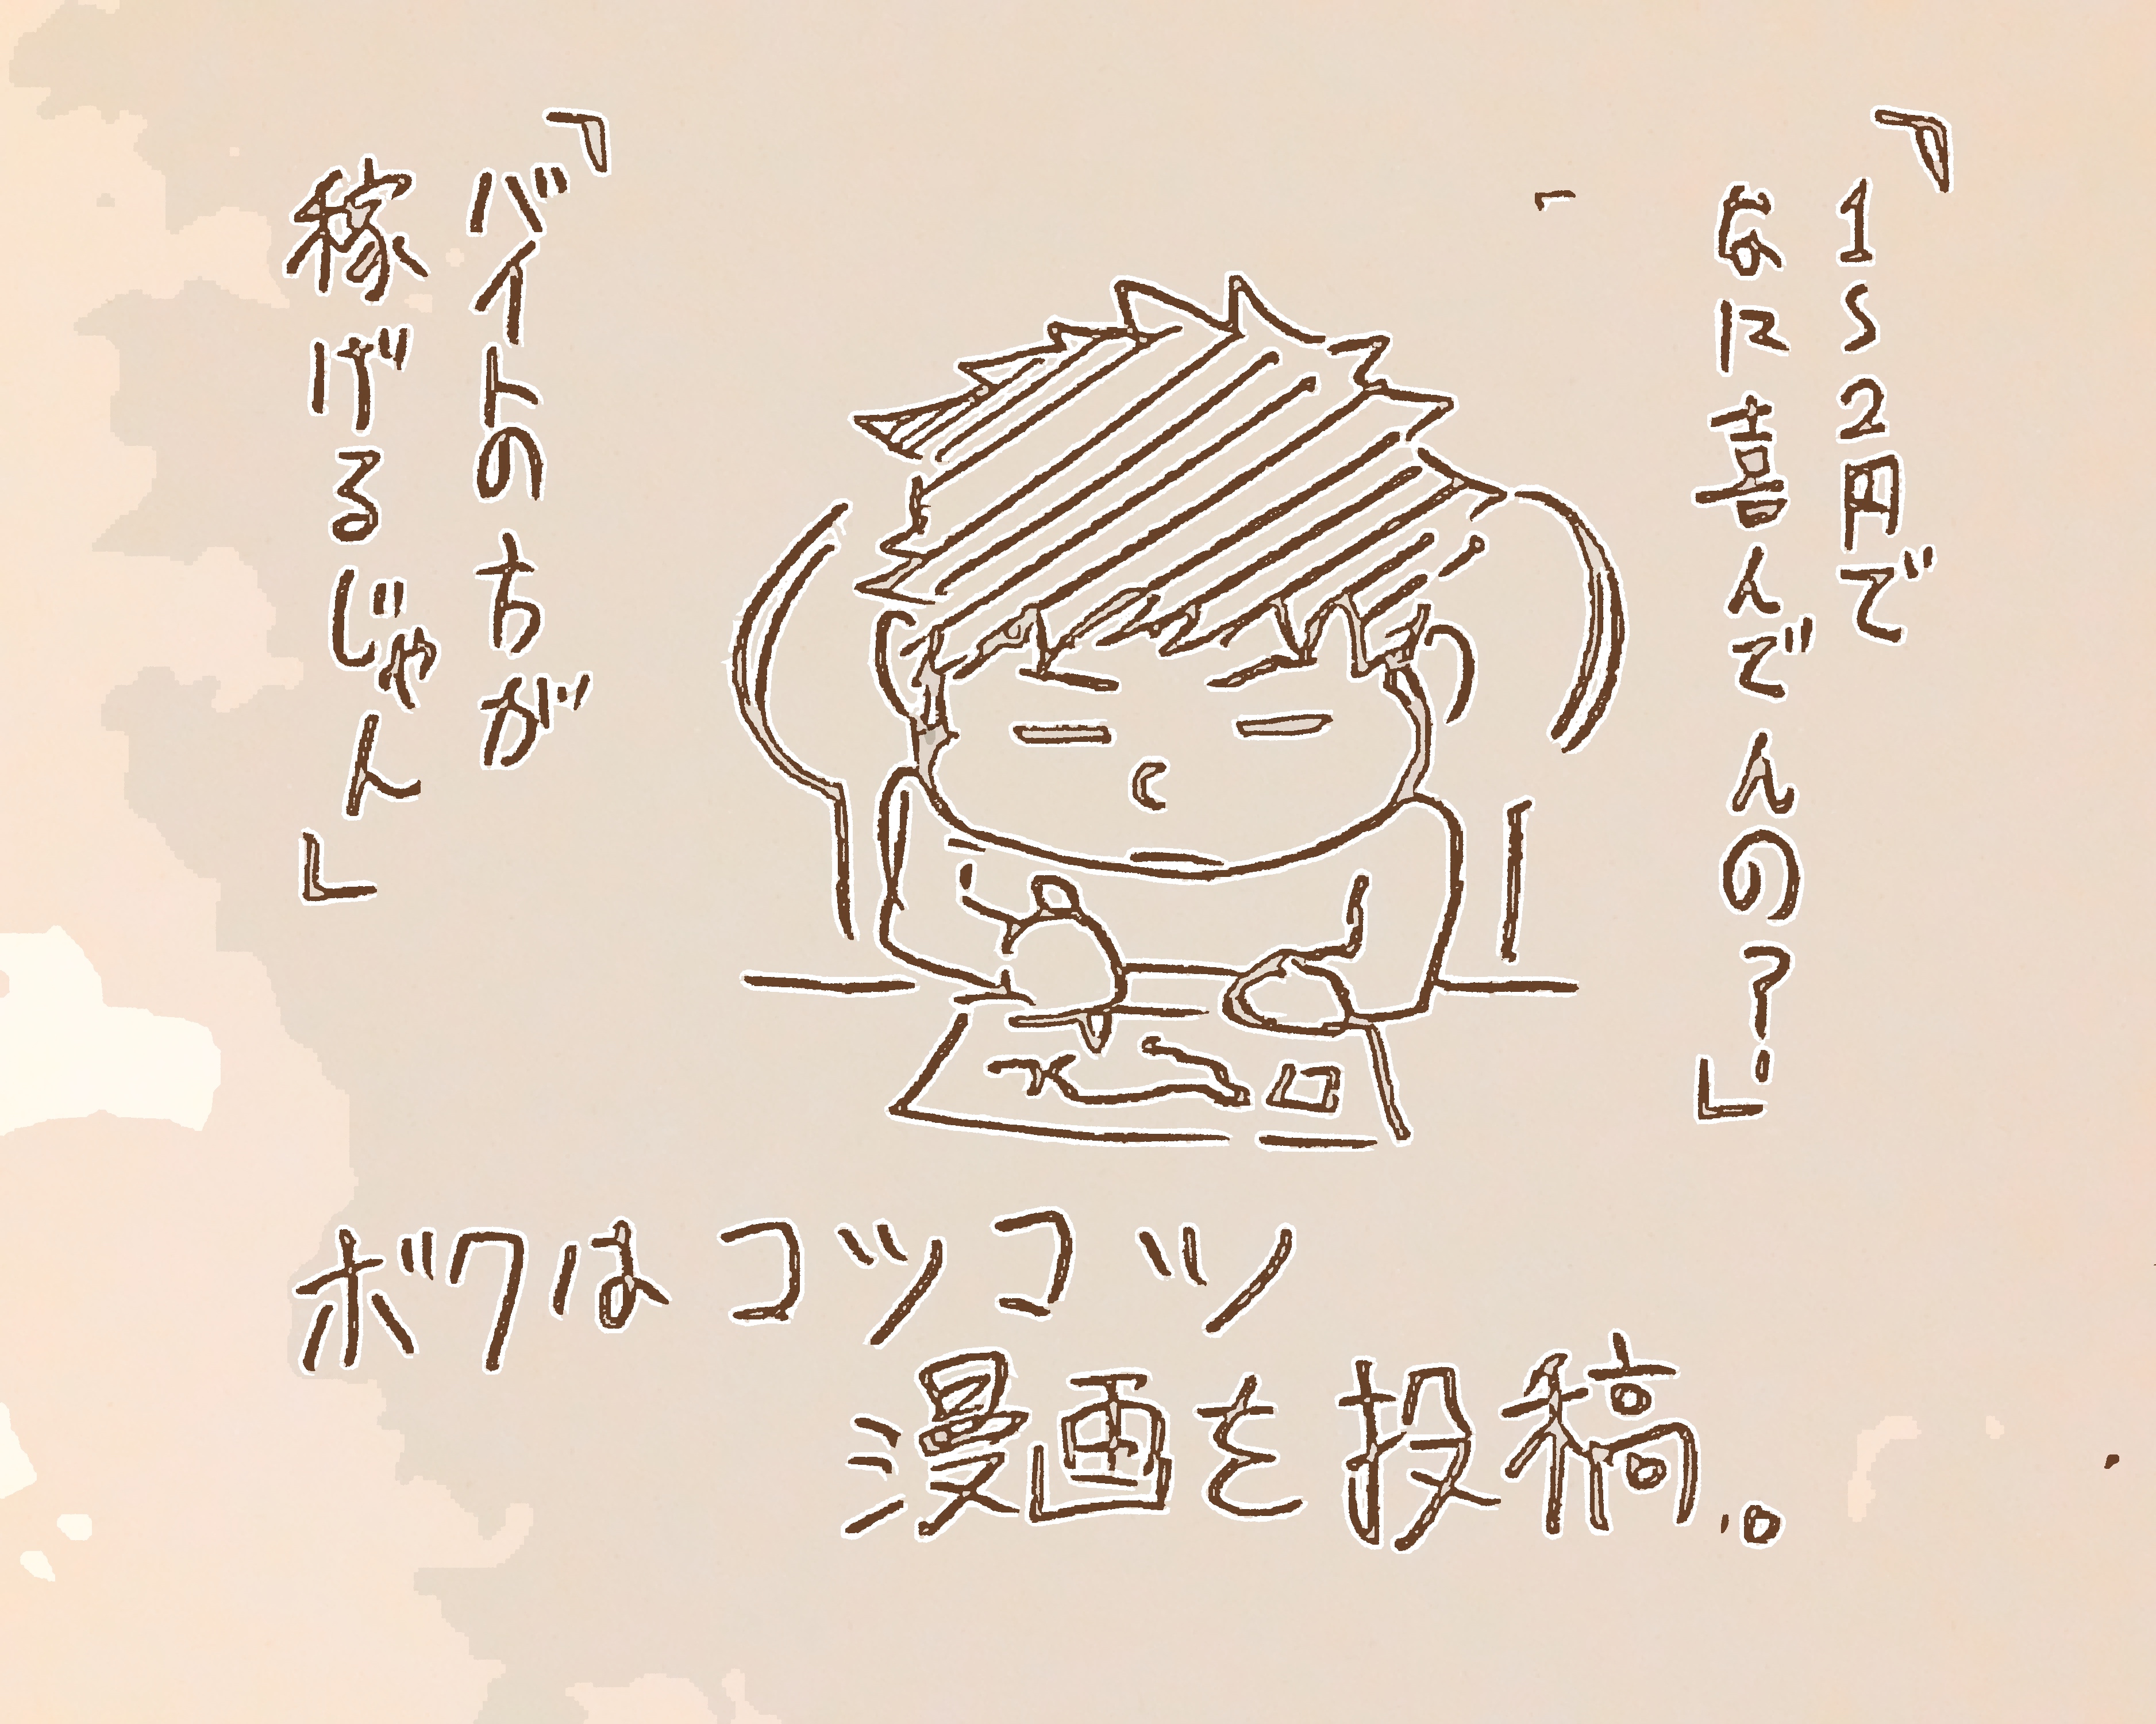 「1〜2円で
なに喜んでんの？」
「バイトの方が
稼げるじゃん」
ボクはコツコツ
漫画を投稿。